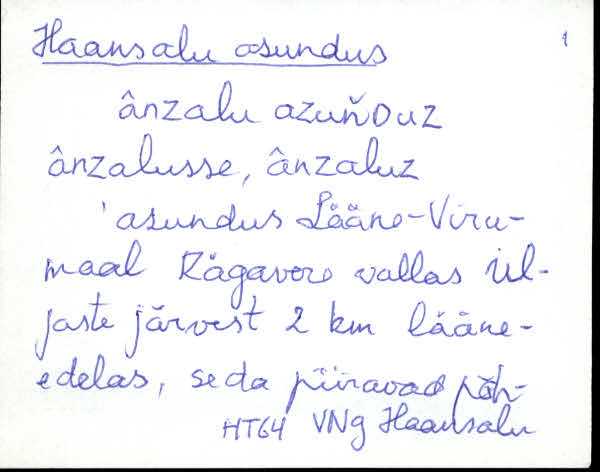 Haansalu asundus 1
ânzalu azuňDuz
ânzalusse, ânzaluz
'asundus Lääne-Viru-
maal Rägavere vallas Ul-
jaste järvest 2 km lääne-
edelas, seda piiravad põh-
HT64 VNg Haansalu